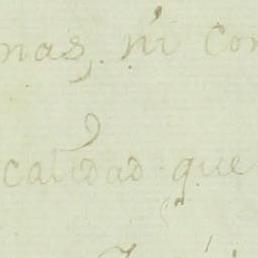 nas, ni con
calidad que